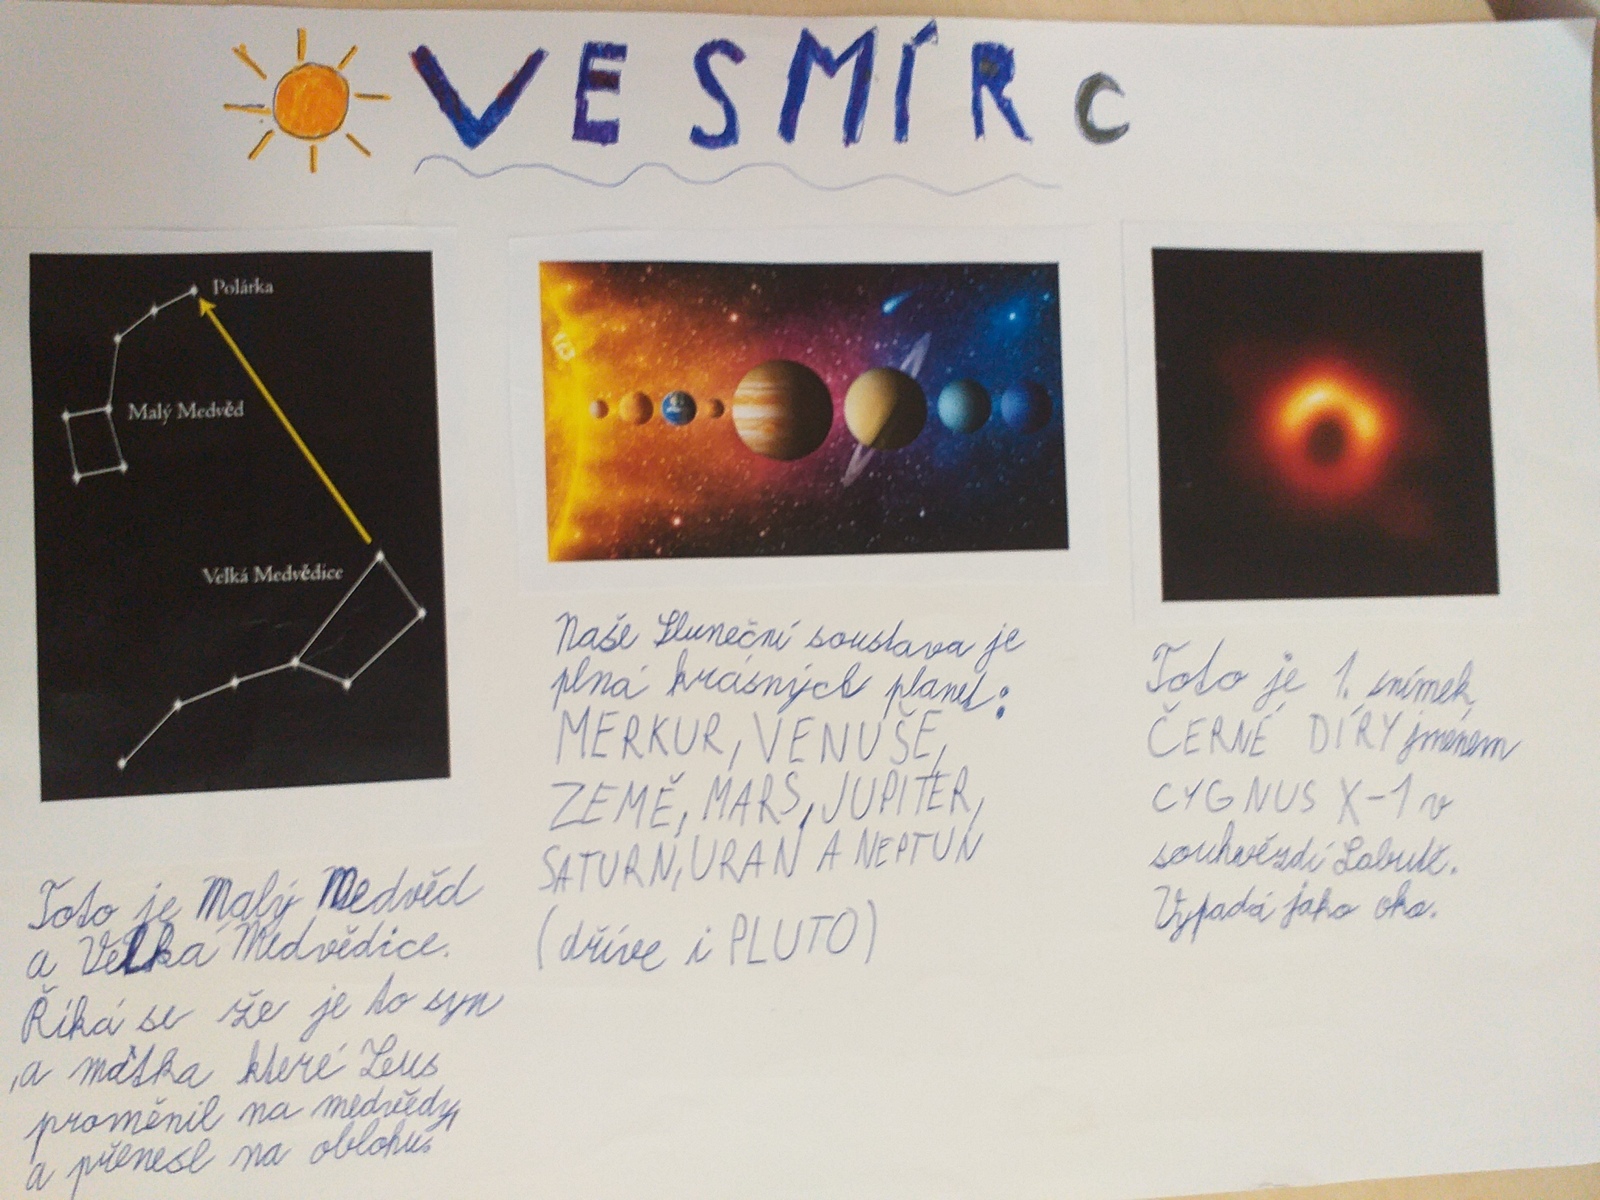 VESMÍR
Polárka
Malý Medvěd
Velká Medvědice
Toto je Malý Medvěd
a Velká Medvědice.
Říká se že je to syn
a matka které Zeus
proměnil na medvědy
a přenesl na oblohu.
Naše Sluneční soustava je
plná krásných planet:
MERKUR, VENUŠE,
ZEMĚ, MARS, JUPITER,
SATURN, URAN A NEPTUN
(dříve i PLUTO)
Toto je 1. snímek
ČERNÉ DÍRY jménem
CYGNUS X-1 v
souhvězdí Labutě.
Vypadá jako oko.